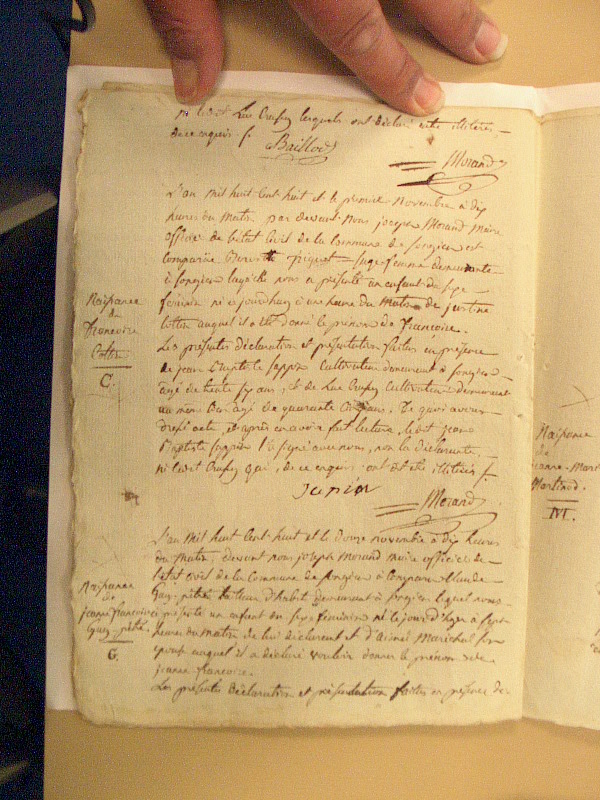 Luc Crusy lesquels ont déclaré être illitérés
de ce enquis /.
Baillod
Morand
L'an mil huit cent huit et le premier novembre à dix
heures du matin par devant nous joseph Morand Maire
officier de l'état civil de la Commune de songieu est
comparue Pernette Piquet sage femme demeurante
à songieu laquelle nous a présenté un enfant du sexe
féminin né aujourd'huy à une heure du matin de justine
Cottin auquel il a été donné le prénom de françoise.
Les présentes déclaration et présentation faites en présence
de jean Baptiste sappin Cultivateur demeurant à songieu
agé de trente ans, & de Luc Crusy Cultivateur demeurant
au même lieu agé de quarante ans. De quoi avons
dressé acte, et après en avoir fait lecture, ledit jean
Baptiste sappin l'a signé avec nous, non la déclarante,
ni ledit Crusy qui, de ce enquis ont été illitérés /.
Japin
Morand
L'an mil huit cent huit et le douze novembre à dix heures
du matin, devant nous joseph Morand maire officier de
l'état civil de la Commune de songieu a comparu Claude
Guy-pethe tailleur d'habit demeurant à songieu lequel nous
a présenté un enfant du sexe féminin né le jour d'hyer à sept
heures du matin de lui déclarant et d'aimé Maréchal son
épouse auquel il a déclaré vouloir donner le prénom de
jeanne françoise.
Les présentes déclaration et présentation faites en présence de
Naissance
de
francoise
Cottin
C.
Naissance
de
jeanne francoise
Guy-pethe
G.
Naissance
de
jeanne-Mari
Martinod.
M.